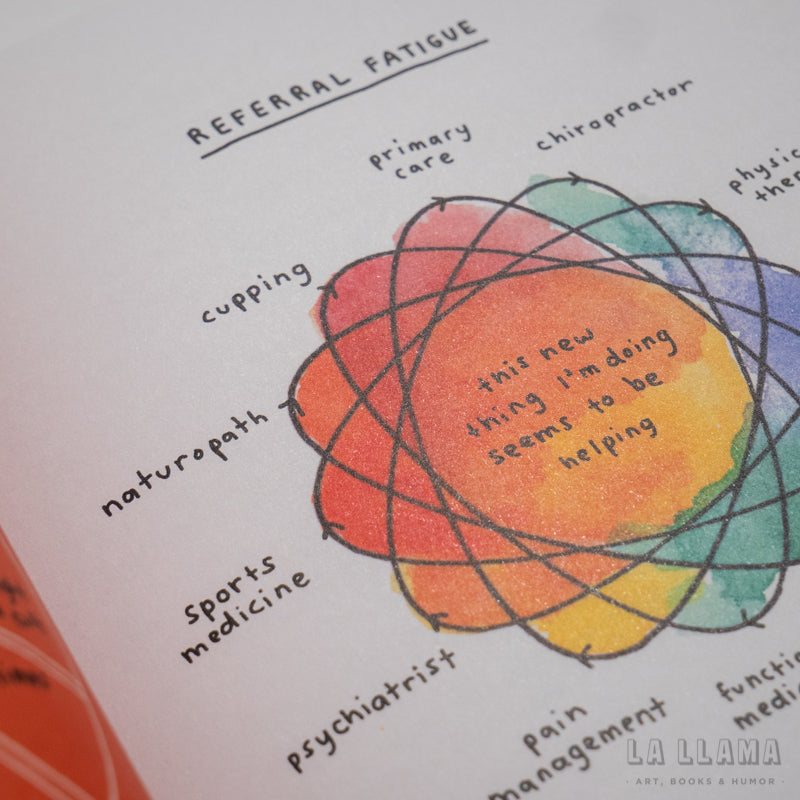 REFERRAL FATIGUE
primary
care
chiropractor
cupping
this new
thing I'm doing
seems to be
helping
naturopath
sports
medicine
psychiatrist
pain
management
LA LLAMA
· ART, BOOKS & HUMOR ·